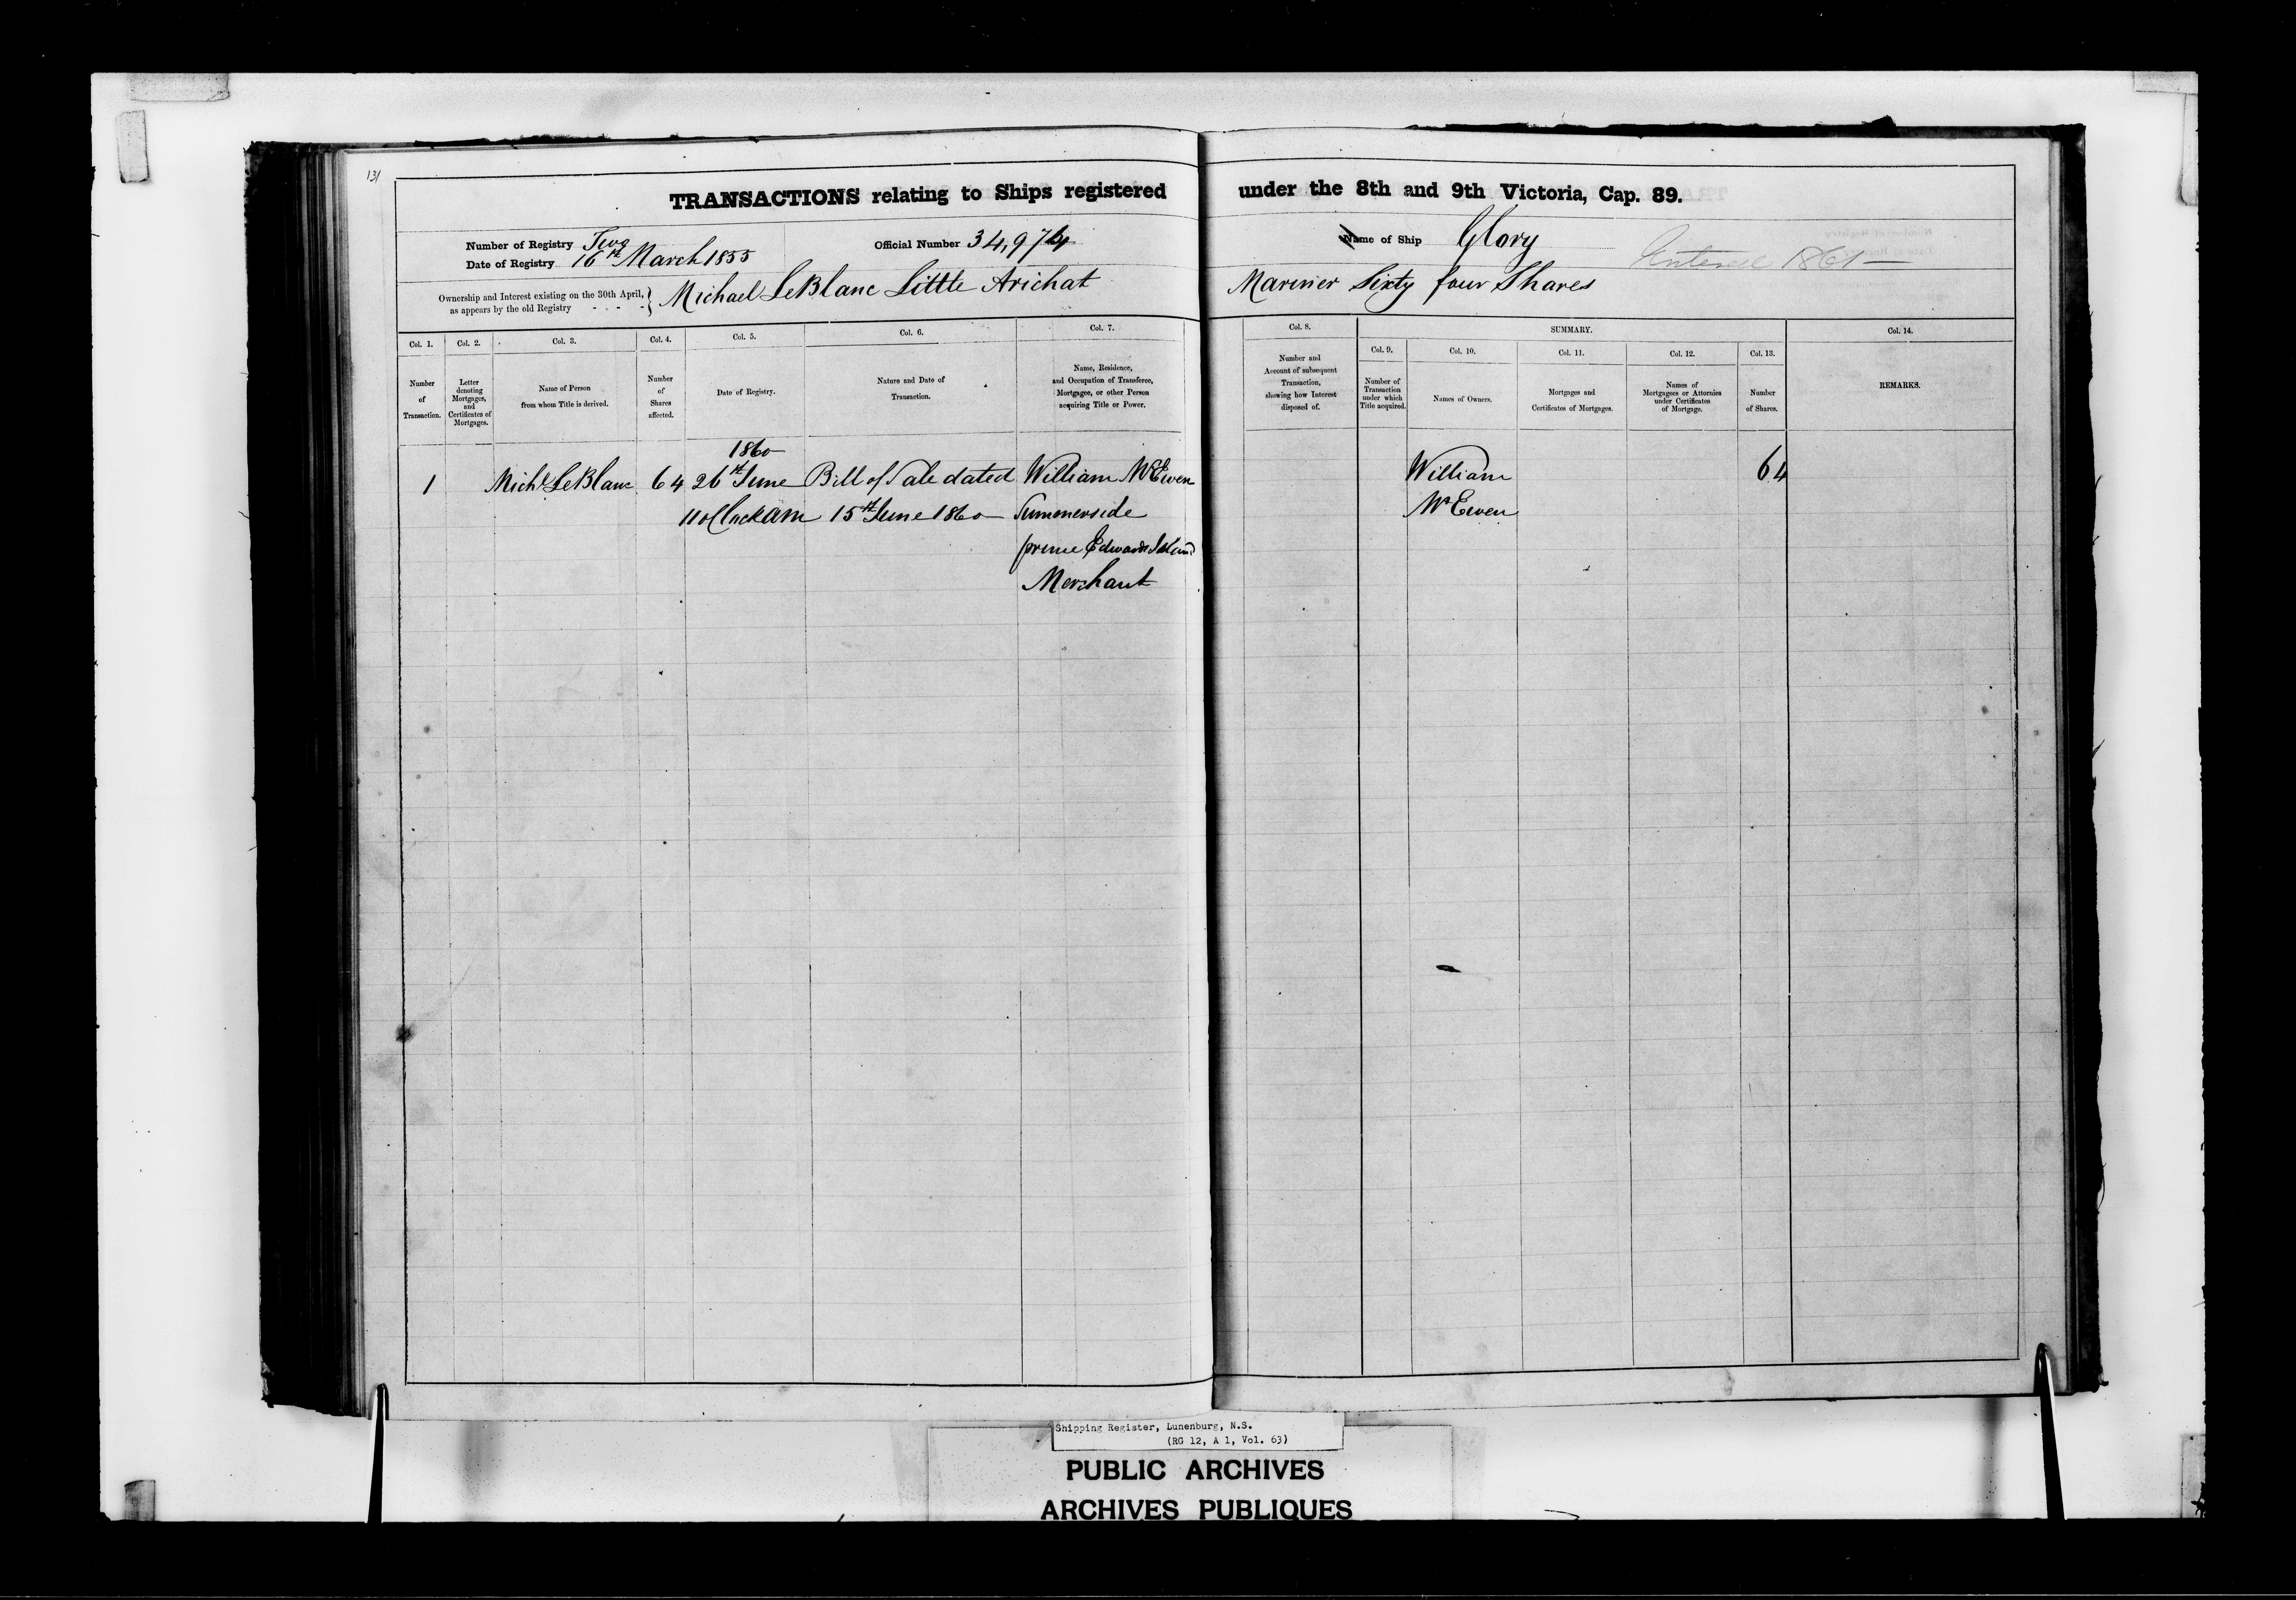 131
TRANSACTIONS relating to Ships registered under the 8th and 9th Victoria, Cap. 89.
Number of Registry Two
Date of Registry 16th March 1855
Official Number 34,974
Name of Ship Glory
Entered 1861
Ownership and Interest existing on the 30th April, as appears by the old Registry - - - -} Michael LeBlanc Little Arichat Mariner Sixty four Shares
Col. 1.
Number of Transaction.
Col. 2.
Letter denoting Mortgages, and Certificates of Mortgages.
Col. 3.
Name of Person from whom Title is derived.
Col. 4.
Number of Shares affected.
Col. 5.
Date of Registry.
Col. 6.
Nature and Date of Transaction.
Col. 7.
Name, Residence, and Occupation of Transferee, Mortgagee, or other Person acquiring Title or Power.
Col. 8.
Number and Account of subsequent Transaction, showing how Interest disposed of.
SUMMARY.
Col. 9.
Number of Transaction under which Title acquired.
Col. 10.
Names of Owners.
Col. 11.
Mortgages and Certificates of Mortgages.
Col. 12.
Names of Mortgagees or Attornies under Certificates of Mortgage.
Col. 13.
Number of Shares.
Col. 14.
REMARKS.
1860
1 Michl LeBlanc 64 26th June Bill of Sale dated William McEwen William 64
11 oClock am 15th June 1860 Summerside McEwen
prince Edwards Island
Merchant
Shipping Register, Lunenburg, N.S.
(RG 12, A 1, Vol. 63)
PUBLIC ARCHIVES
ARCHIVES PUBLIQUES